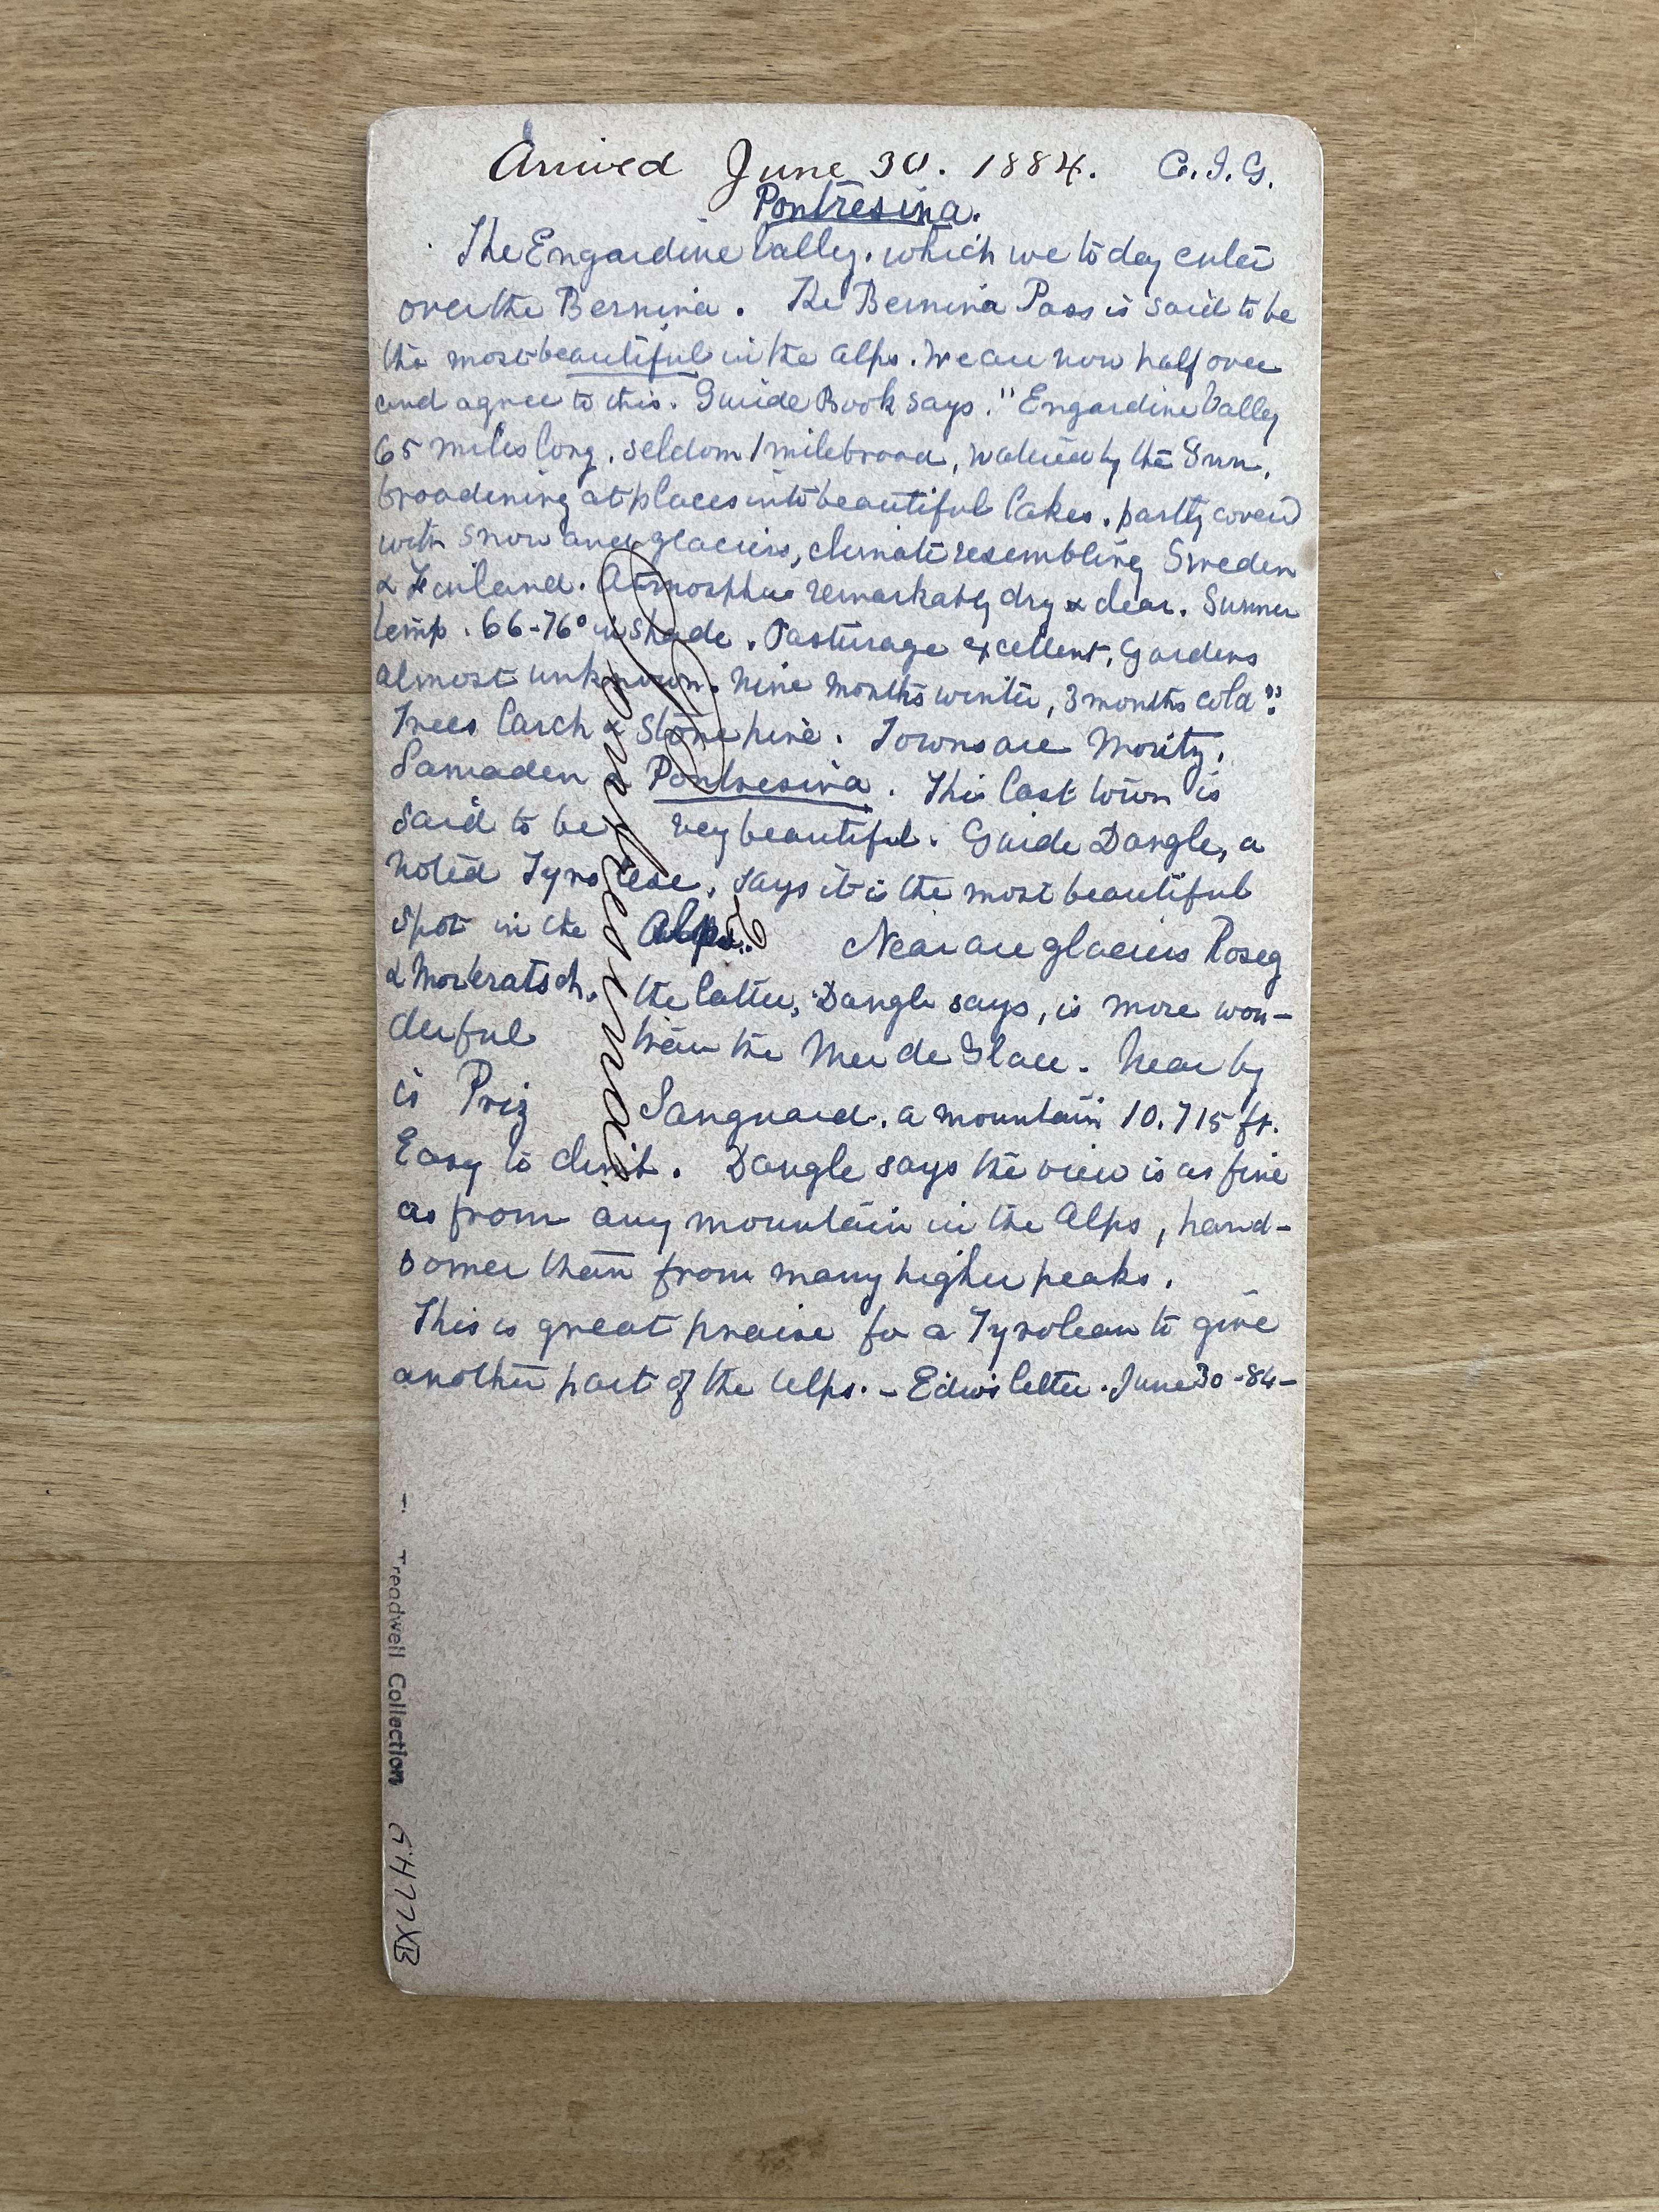 Arrived June 30. 1884. C. I. G.
Pontresina.
The Engardine Valley. which we to day enter
over the Bernina. The Bernina Pass is said to be
the most beautiful in the Alps. We are now half over
and agree to this. Guide Book says. "Engardine Valley
65 miles long, seldom 1 mile broad, watered by the Inn,
broadening at places into beautiful lakes. partly covered
with snow and glaciers, climate resembling Sweden
& Finland. Atmosphere remarkably dry & clear. Summer
temp. 66-76° in shade. Pasturage excellent, Gardens
almost unknown. Nine months winter, 3 months cold".
Trees Larch & Stone pine. Towns are Moritz,
Samaden & Pontresina. This last town is
said to be very beautiful. Guide Dangle, a
noted Tyrolese, says it is the most beautiful
spot in the Alps. Near are glaciers Roseg
& Morteratsch. the latter, Dangle says, is more won-
derful than the Mer de Glace. Near by
is Priz Languard. a mountain 10.715 ft.
Easy to climb. Dangle says the view is as fine
as from any mountain in the Alps, hand-
somer than from many higher peaks.
This is great praise for a Tyrolean to give
another part of the Alps. - Edw's letter. June 30 -84-
Pontresina.
T. Treadwell Collection GH77XB